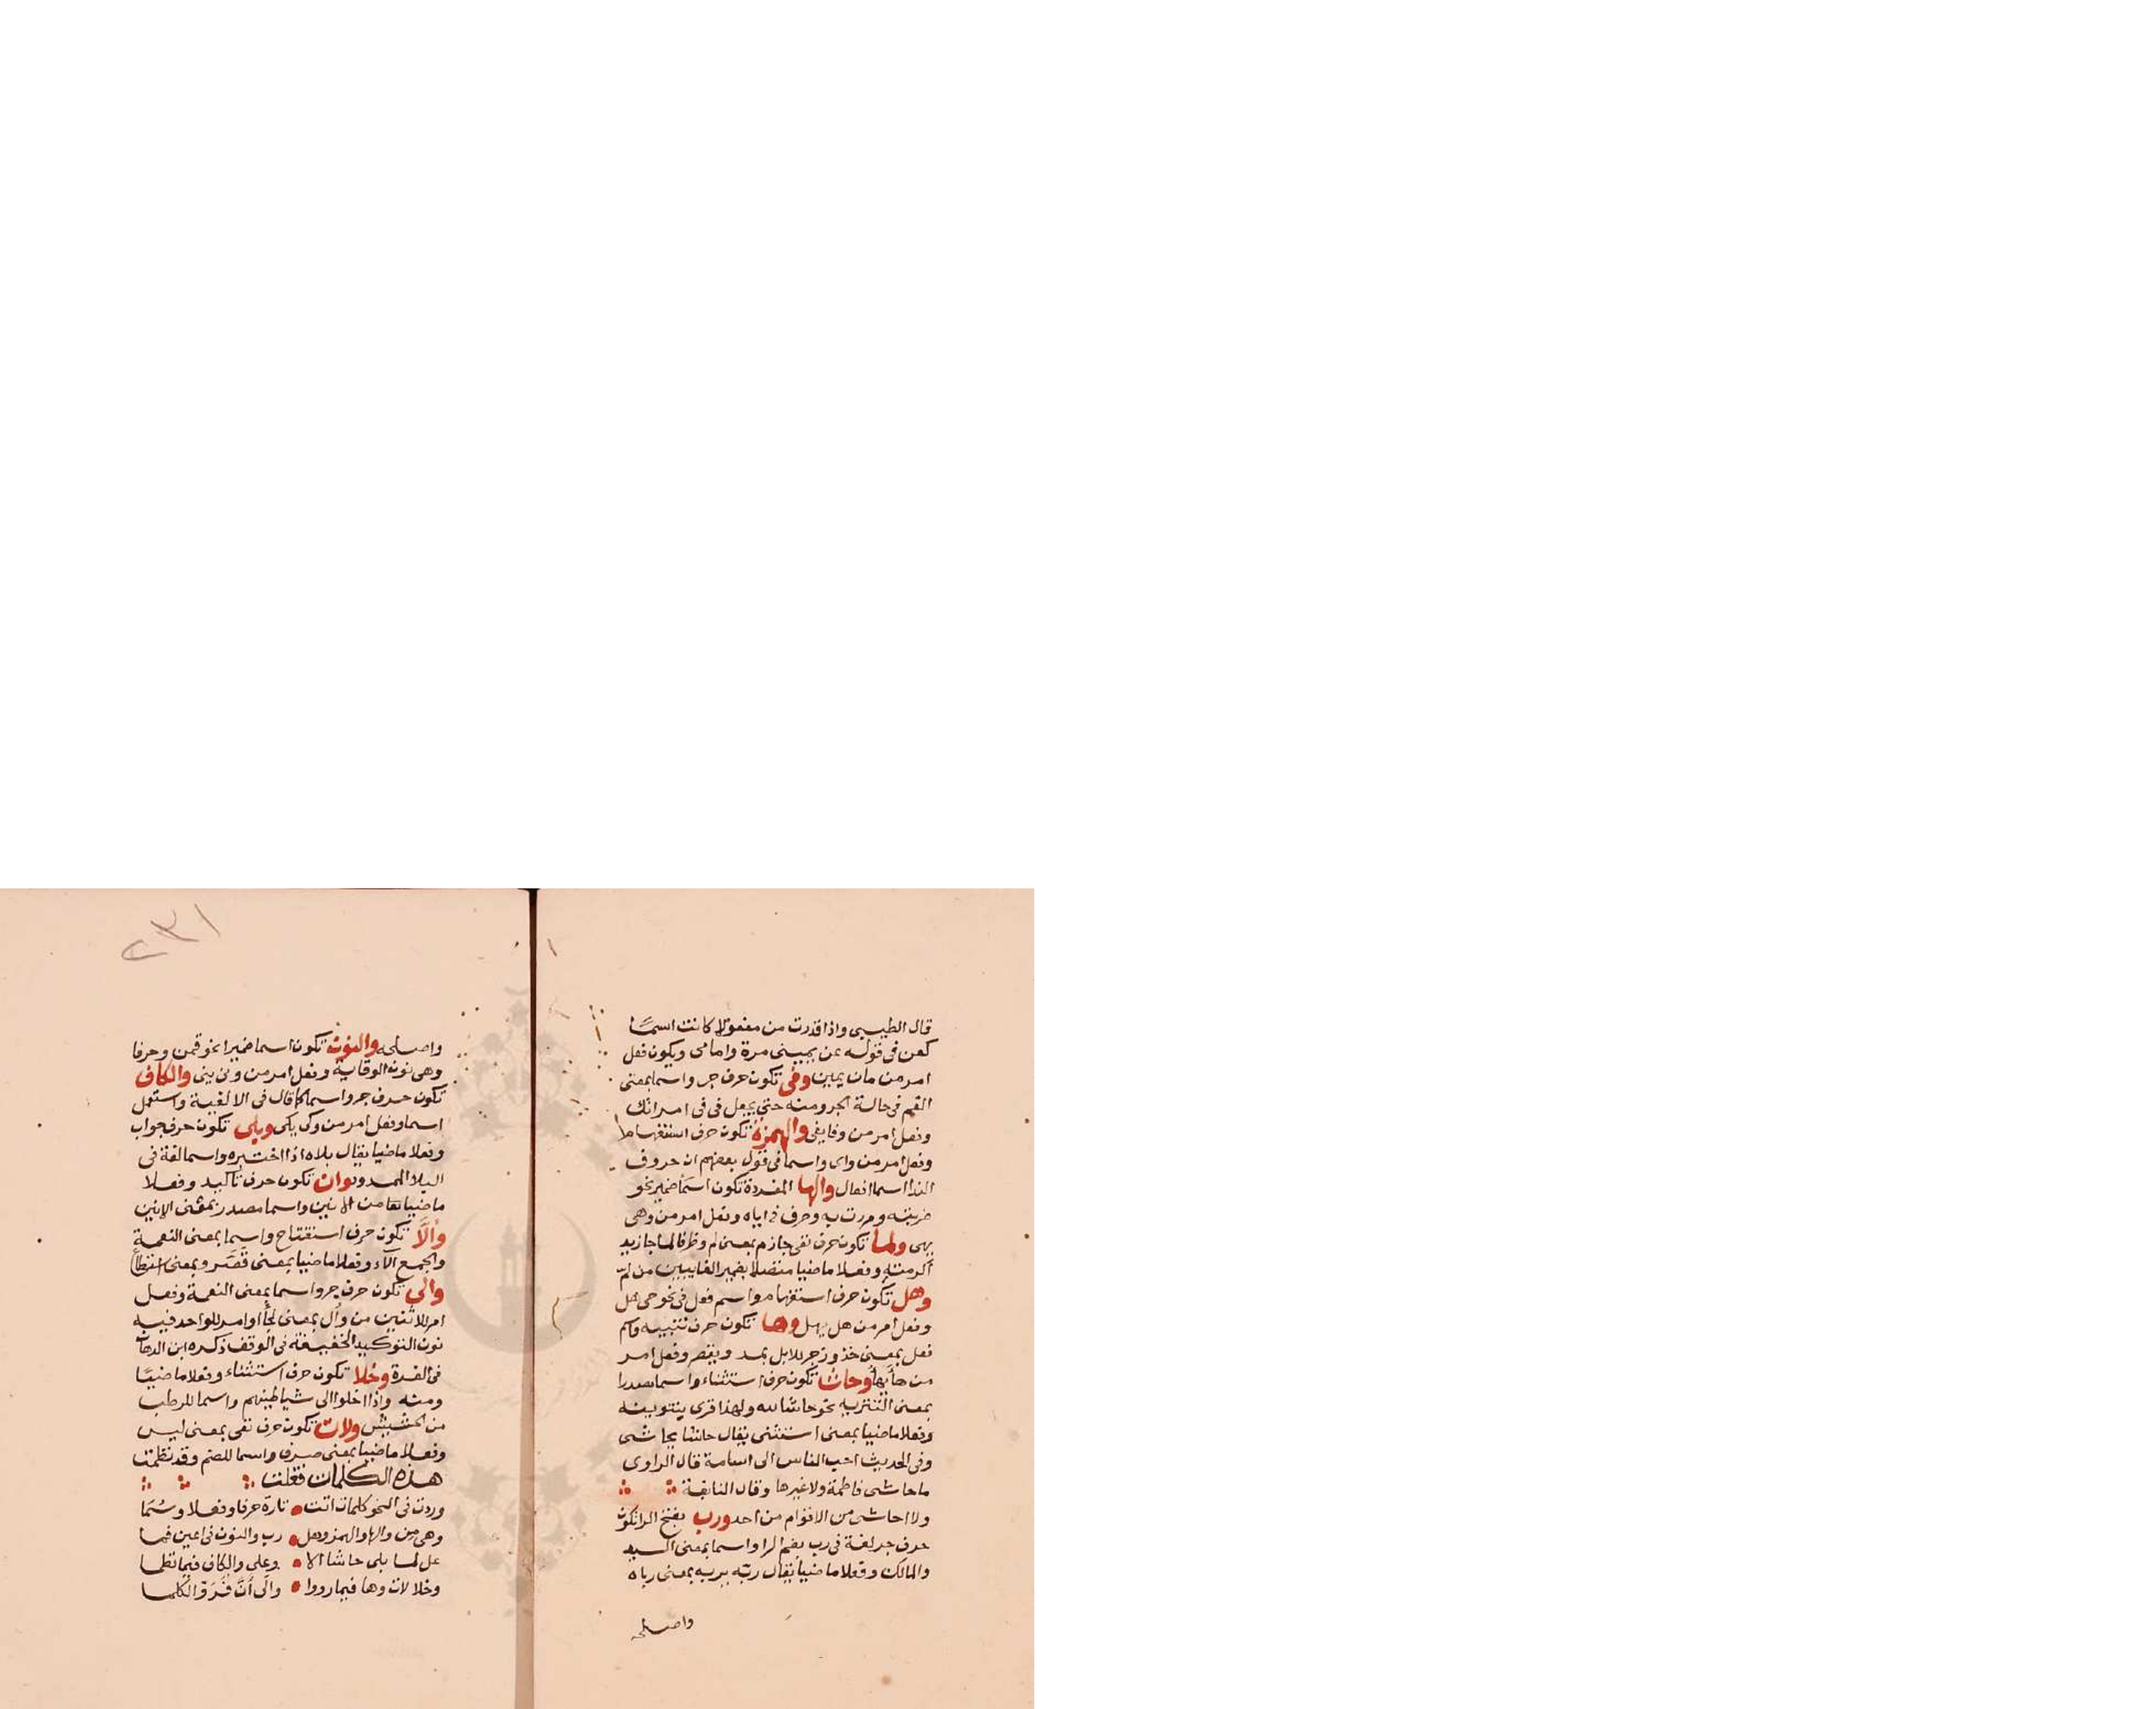 قال الطيبى واذا قدرت من مفعولا كانت اسمًا
كعن فى قوله عن يمينى مرة وامامى ويكون فعل
امر من مان يمين وفى تكون حرف جر واسما بمعنى
الفم فى حالة الجر ومنه حتى يجعل فى فى امراتك
وفعل امر من وفا يفى والهمزة تكون حرف استفهام
وفعل امر من واى واسما فى قول بعضهم ان حروف
الندا اسما افعال والها المفردة تكون اسما ضمير نحو
ضربته ومررت به وحرف فى اياه وفعل امر من وهى
يهى ولما تكون حرف نفى جازم بمعنى لم وظرفا لما جا زيد
اكرمته وفعلا ماضيا متصلا بضمير الغايبين من لمّ
وهل تكون حرف استفهام واسم فعل فى نحو حى هل
وفعل امر من هل يهل وها تكون حرف تنبيه واسم
فعل بمعنى خذ وزجر للابل يمد ويقصر وفعل امر
من هاء يهاء وحاشا تكون حرف استثناء واسما مصدرا
بمعنى التنزيه نحو حاشا لله ولهذا قرى بتنوينه
وفعلا ماضيا بمعنى استثنى يقال حاشا يحاشى
وفى الحديث احب الناس الى اسامة قال الراوى
ما حاشى فاطمة ولا غيرها وقال النابغة
ولا احاشى من الاقوام من احد ورب بفتح الرا تكون
حرف جر لغة فى رب بضم الرا واسما بمعنى السيد
والمالك وفعلا ماضيا يقال ربّه يربه بمعنى رباه
واصلحه
٢٣١
واصلحه والنون تكون اسما ضميرا نحو قمن وحرفا
وهى نون الوقاية وفعل امر من ونى ينى والكاف
تكون حرف جر واسما كما قال فى الالفية واستعمل
اسما وفعل امر من وكى يكى وبلى تكون حرف جواب
وفعلا ماضيا يقال بلاه اذا اختبره واسما لغة فى
البلا الممدود وان تكون حرف تاكيد وفعلا
ماضيا من الانين واسما مصدر بمعنى الانين
والا تكون حرف استفتاح واسما بمعنى النعمة
والجمع الآء وفعلا ماضيا بمعنى قصّر وبمعنى استطاع
والى تكون حرف جر واسما بمعنى النعمة وفعل
امر للاثنين من وأل بمعنى لجأ او امر للواحد فيه
نون التوكيد الخفيفة فى الوقف ذكره ابن الدهان
فى الغرة وخلا تكون حرف استثناء وفعلا ماضيًا
ومنه واذا خلوا الى شياطينهم واسما للرطب
من الحشيش ولات تكون حرف نفى بمعنى ليس
وفعلا ماضيا بمعنى صرف واسما للصنم وقد نظمت
هذه الكلمات فقلت
وردت فى النحو كلمات اتت تارة حرفا وفعلا وسُمَا
وهى من والها والهمز وهل رب والنون فى اعين فما
عل لما بلى حاشا الا وعلى والكاف فيما نظما
وخلا لات وها فيما رووا والى أنّ فَرَوّ الكلما